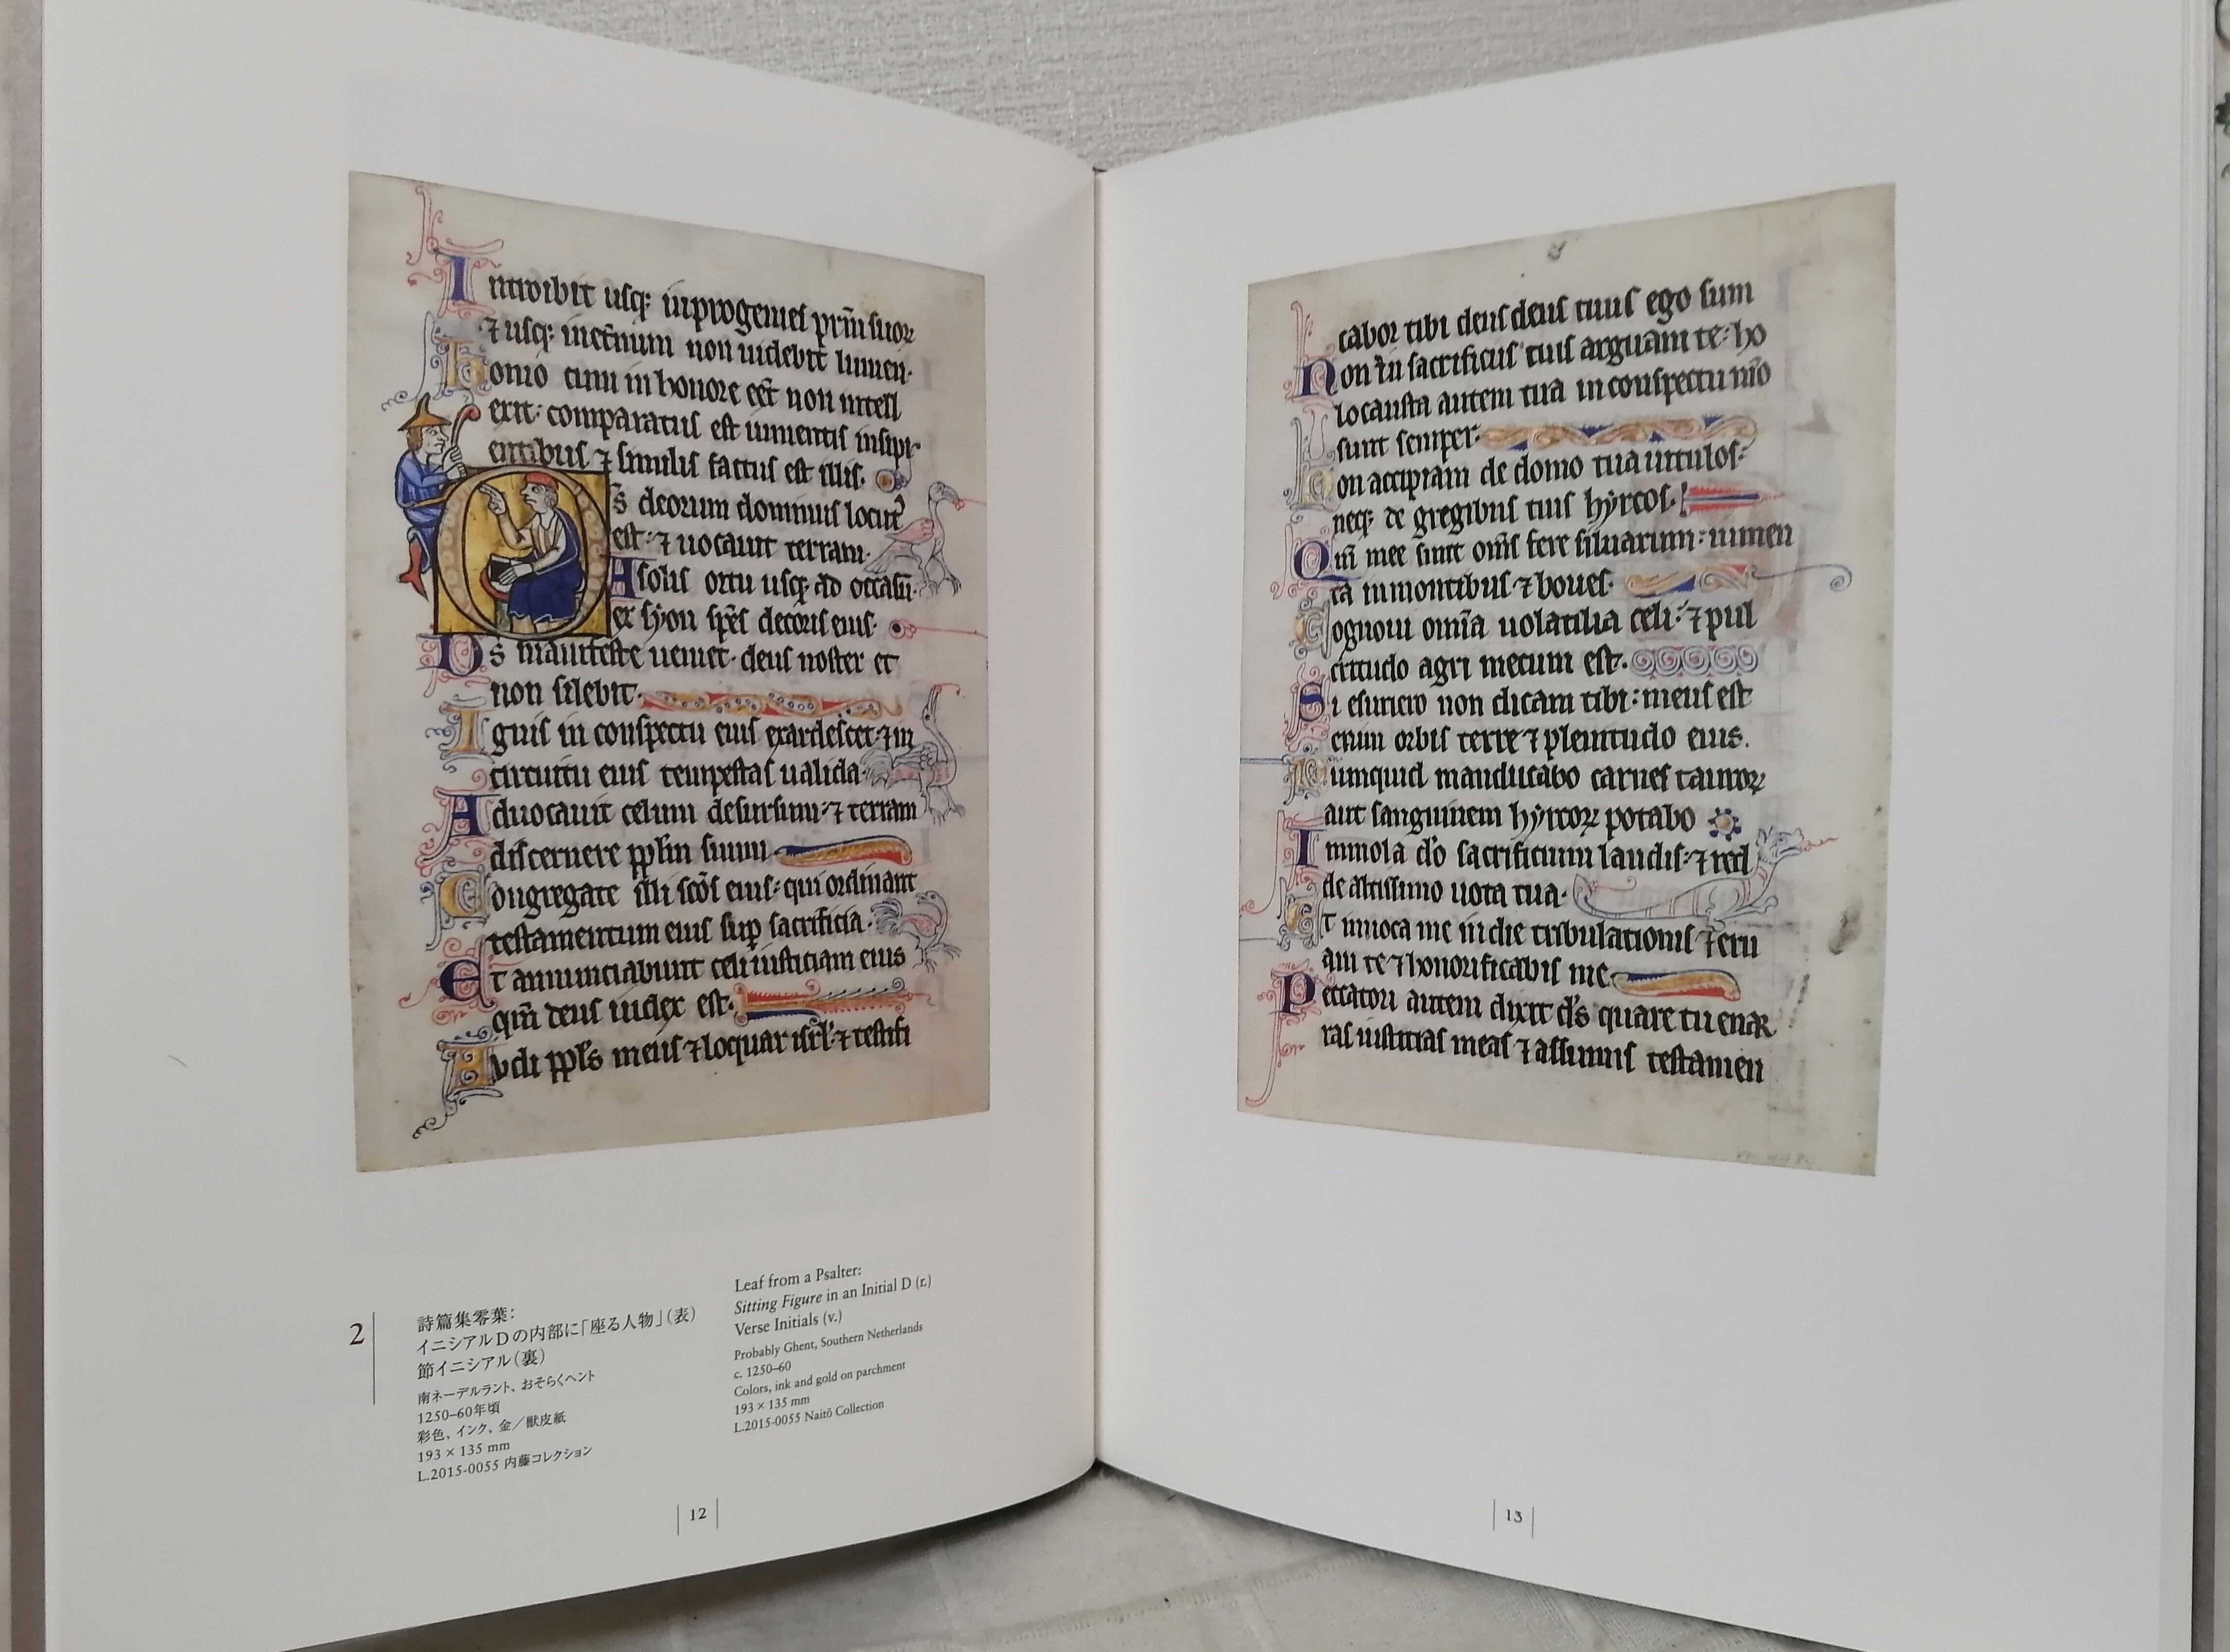 Introibit usq; inprogenies prm̄ suoꝝ
⁊ usq; inet̄num non uidebit lumen.
homo cum in honore eēt non intell
exit: comparatus est iumentis insipi
entibus ⁊ similis factus est illis.
D s̄ deorum dominus locut᷒
est: ⁊ uocauit terram.
A solis ortu usq; ad occasū.
ex syon sp̄es decoris eius.
Ds̄ manifeste ueniet. deus noster et
non silebit.
Ignis in conspectu eius exardescet. ⁊ in
circuitu eius tempestas ualida.
Aduocauit celum desursum. ⁊ terram
discernere pp̄lm suum
Congregate illi sc̄os eius: qui ordinant
testamentum eius sup̄ sacrificia.
Et annunciabunt celi iusticiam eius
qm̄ deus iudex est.
Audi pp̄ls meus ⁊ loquar isrl̄. ⁊ testifi
cabor tibi deus deus tuus ego sum
Non in sacrificiis tuis arguam te: ho
locausta autem tua in conspectu m̄o
sunt semper.
Non accipiam de domo tua uitulos:
neq; de gregibus tuis hyrcos.
Qm̄ mee sunt om̄s fere siluarum: iumen
ta in montibus ⁊ boues.
Cognoui om̄ia uolatilia celi: ⁊ pul
critudo agri mecum est.
Si esuriero non dicam tibi: meus est
enim orbis terre ⁊ plenitudo eius.
Numquid manducabo carnes tauroꝝ
aut sanguinem hyrcoꝝ potabo
Immola d̄o sacrificium laudis: ⁊ red
de altissimo uota tua.
Et inuoca me in die tribulationis ⁊ eru
am te ⁊ honorificabis me
Peccatori autem dixit d̄s quare tu enar
ras iusticias meas ⁊ assumis testamen
2
詩篇集零葉：
イニシアルDの内部に「座る人物」（表）
節イニシアル（裏）
南ネーデルラント、おそらくヘント
1250–60年頃
彩色、インク、金／獣皮紙
193 × 135 mm
L.2015-0055 内藤コレクション
Leaf from a Psalter:
Sitting Figure in an Initial D (r.)
Verse Initials (v.)
Probably Ghent, Southern Netherlands
c. 1250–60
Colors, ink and gold on parchment
193 × 135 mm
L.2015-0055 Naitō Collection
12
13